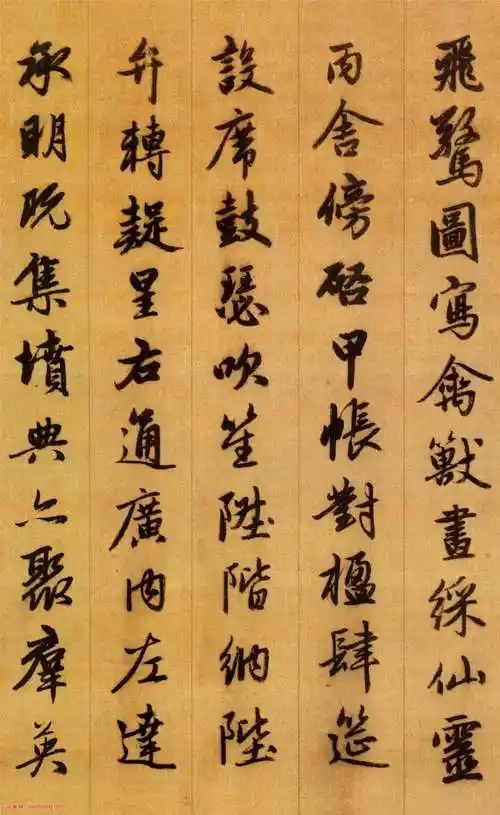 飛驚圖寫禽獸畫綵仙靈
丙舍傍啓甲帳對楹肆筵
設席鼓瑟吹笙陞階納陛
弁轉疑星右通廣内左達
承明既集墳典亦聚羣英